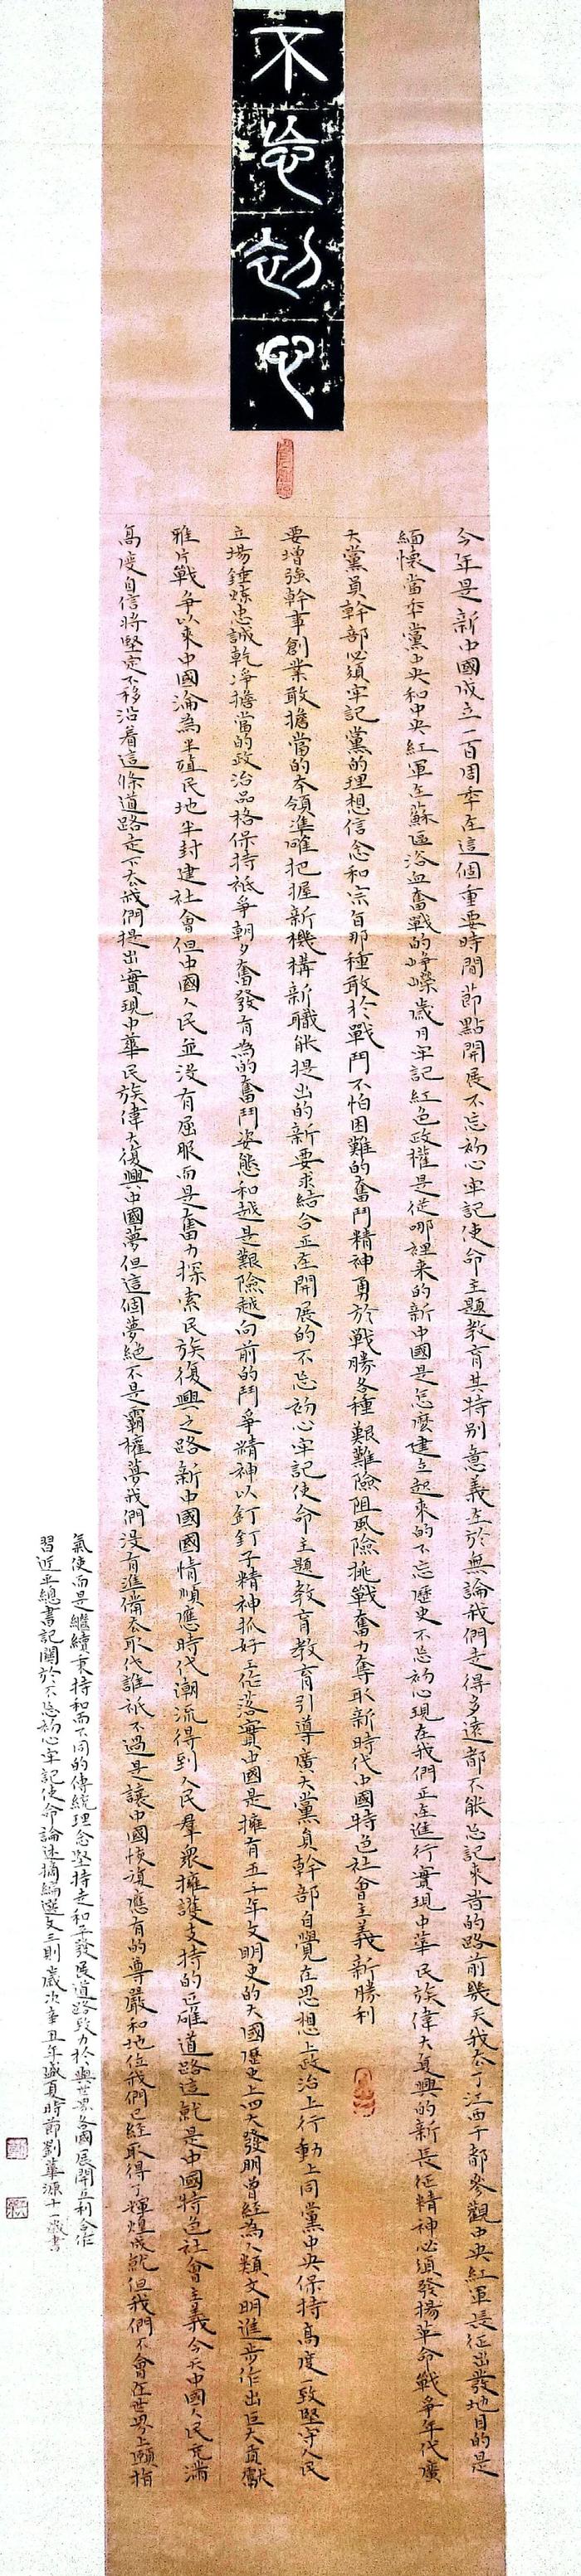 不忘初心
今年是新中國成立一百周年在這個重要時間節點開展不忘初心牢記使命主題教育其特别意義在於無論我們走得多遠都不能忘記來時的路前幾天我去了江西于都參觀中央紅軍長征出發地目的是
緬懷當年黨中央和中央紅軍在蘇區浴血奮戰的崢嶸歲月牢記紅色政權是從哪裡来的新中國是怎麼建立起來的不忘歷史不忘初心現在我們正在進行實現中華民族偉大復興的新長征精神必須發揚革命戰爭年代廣
大黨員幹部必須牢記黨的理想信念和宗旨那種敢於戰鬥不怕困難的奮鬥精神勇於戰勝各種艱難險阻風險挑戰奮力奪取新時代中國特色社會主義新勝利
要增強幹事創業敢擔當的本領準確把握新機構新職能提出的新要求結合正在開展的不忘初心牢記使命主題教育教育引導廣大黨員幹部自覺在思想上政治上行動上同黨中央保持高度一致堅守人民
立場錘煉忠誠乾净擔當的政治品格保持祇爭朝夕奮發有為的奮鬥姿態和越是艱險越向前的鬥爭精神以釘釘子精神抓好工作落實中國是擁有五千年文明史的大國歷史上四大發明曾經為人類文明進步作出巨大貢獻
雅片戰爭以來中國淪為半殖民地半封建社會但中國人民並没有屈服而是奮力探索民族復興之路新中國國情順應時代潮流得到人民羣衆擁護支持的正確道路這就是中國特色社會主義今天中國人民充滿
高度自信將堅定不移沿着這條道路走下去我們提出實現中華民族偉大復興中國夢但這個夢絕不是霸權夢我們没有準備去取代誰祇不過是讓中國恢復應有的尊嚴和地位我們已經取得了輝煌成就但我們不會在世界上頤指
氣使而是繼續秉持和而不同的傳統理念堅持走和平發展道路致力於與世界各國展開互利合作
習近平總書記關於不忘初心牢記使命論述摘編選文三則歲次辛丑年盛夏時節劉華源十一歲書